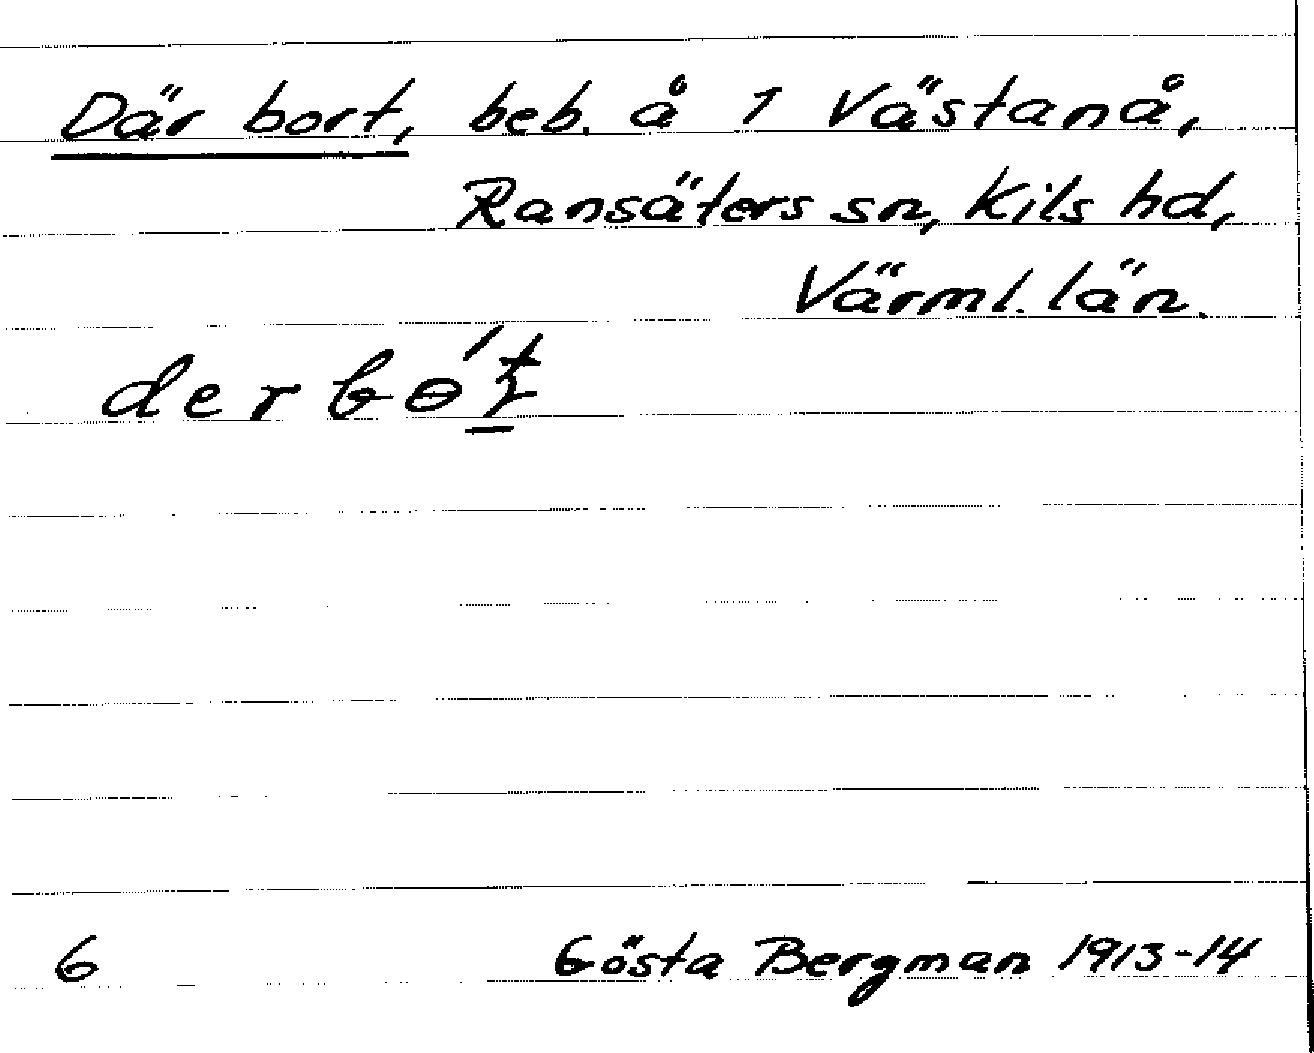 Där bort, beb. å 1 Västanå,
Ransäters sn, Kils hd,
Värml. län.
derbɵ́ʈ
6 Gösta Bergman 1913-14